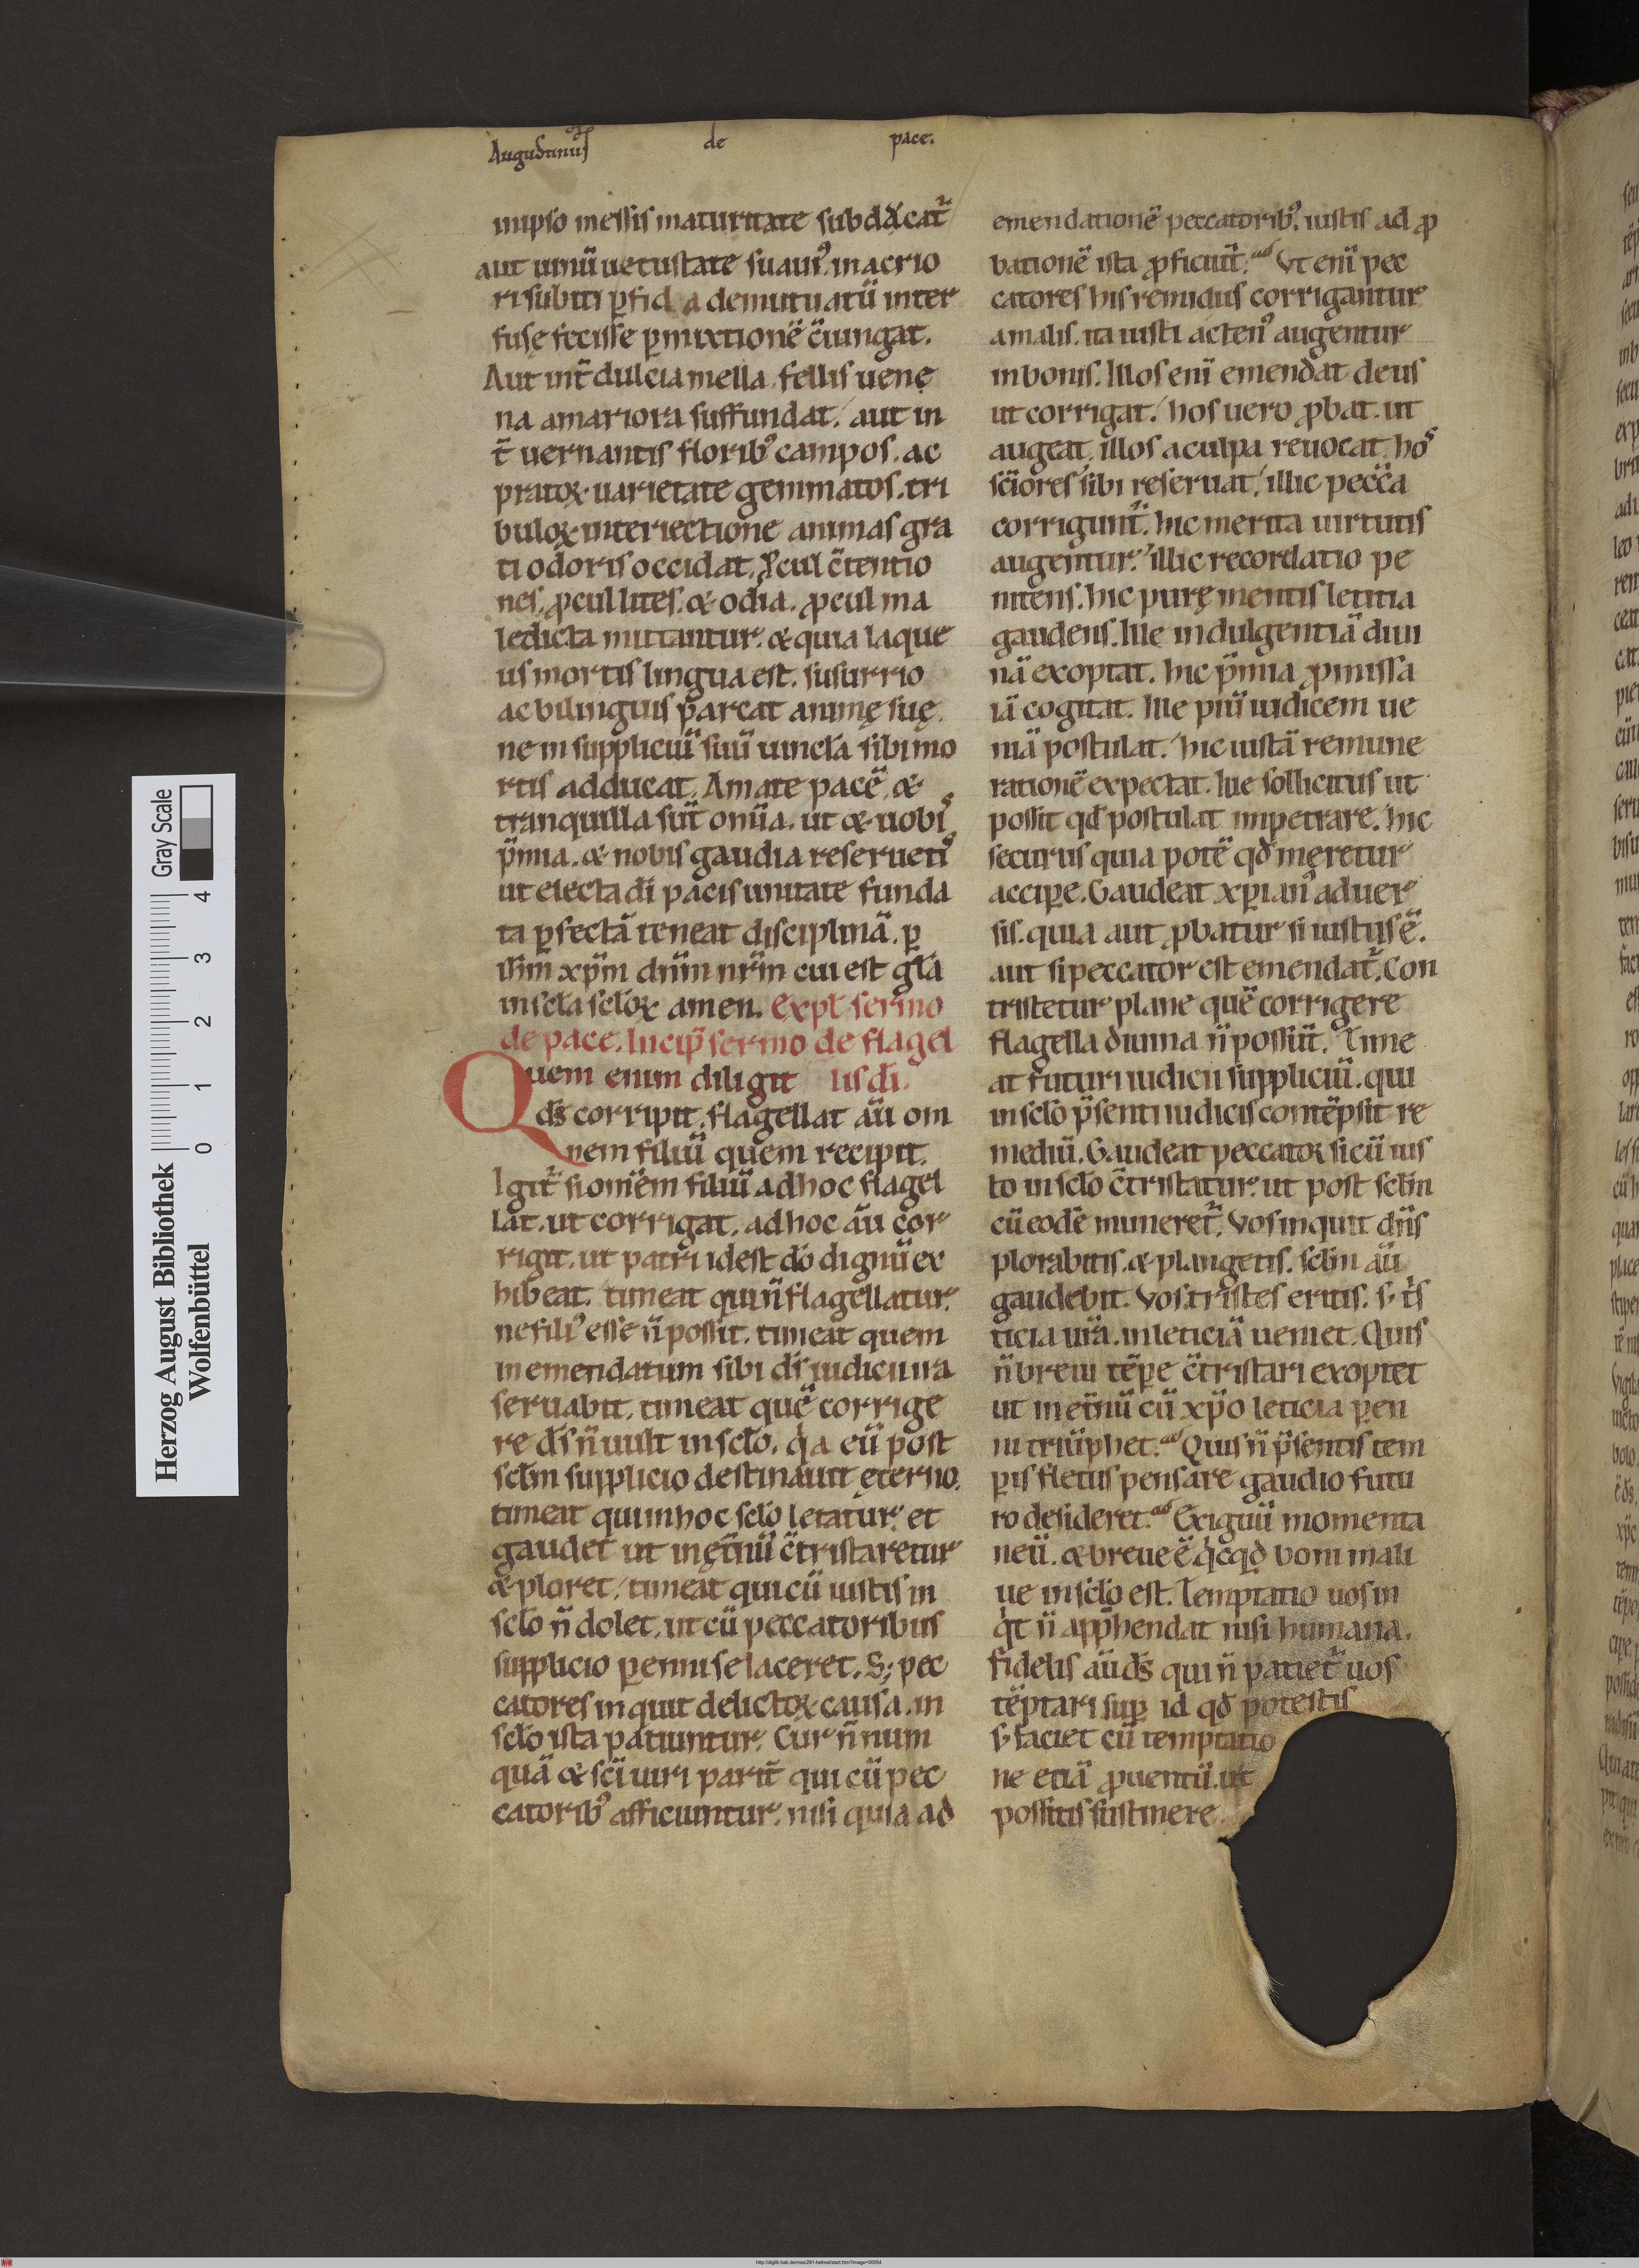 Augustinus de pace.
inipso messis maturitate subddx̄cat̄
aut uinū uetustate suauiꝰ. inacrio
risubiti ꝑfid a demutuatū inter
fusę fecisse ꝑmixtionē c̄iungat.
Aut int̄ dulcia mella, fellis uenę
na amariora suffundat. aut in
t̄ uernantis floribꝰ campos, ac
pratoꝝ uarietate gemmatos, tri
buloꝝ interiectione animas gra
ti odoris occidat. Ꝓcul c̄tentio
nes, ꝓcul lites, & odia. ꝓcul ma
ledicta mittantur. & quia laque
us mortis lingua est. susurrio
ac bilinguis parcat animę suę.
ne in suppliciū suū uincla sibi mo
rtis adducat. Amate pacē, &
tranquilla sūt om̄ia. ut & uobis
p̄mia. & nobis gaudia reseruetis
ut electa dī pacis unitate funda
ta ꝑfectā teneat disciplinā. ꝑ
ihm̄ xp̄m dn̄m nr̄m cui est gl̄a
in scl̄a scl̄oꝝ amen. Expl̄ sermo
de pace. Incip̄ sermo de flagel
Quem enim diligit lis dī.
ds̄ corripit. flagellat aū om
nem filiū quem recipit.
Igit̄ si om̄em filiū ad hoc flagel
lat. ut corrigat, ad hoc aū cor
rigit. ut patri id est dō dignū ex
hibeat. timeat qui n̄ flagellatur.
ne filiꝰ esse n̄ possit. timeat quem
inemendatum sibi ds̄ iudicii ira
seruabit, timeat quē corrige
re ds̄ n̄ uult in scl̄o. qa eū post
scl̄m supplicio destinauit ęterno.
timeat qui in hoc scl̄o letatur. et
gaudet ut inęt̄nū c̄tristaretur
& ploret, timeat qui cū iustis in
scl̄o n̄ dolet, ut cū peccatoribus
supplicio ꝑenni se laceret. S; pec
catores inquit delictoꝝ causa, in
scl̄o ista patiuntur. Cur n̄ num
quā & sc̄i uiri parit̄ qui cū pec
catoribꝰ afficiuntur. nisi quia ad
emendationē peccatoribꝰ. iustis ad ꝓ
bationē ista ꝓficiūt. Vt enī pec
catores his remidiis corrigantur
a malis. ita iusti actenꝰ augentur
in bonis. Illos enī emendat deus
ut corrigat. hos uero ꝓbat. ut
augeat, illos a culpa reuocat hos
sc̄iores sibi reseruat, illic pecc̄a
corrigunt̄. hic merita uirtutis
augentur. illic recordatio pe
nitens. hic purę mentis letitia
gaudens. Ille indulgentiā diui
nā exoptat. hic p̄mia ꝓmissa
iā cogitat. Ille piū iudicem ue
niā postulat. hic iustā remune
rationē expectat. Ille sollicitus ut
possit qd̄ postulat impetrare. hic
securus quia potē qd̄ meretur
acciꝑe. Gaudeat xp̄ianꝰ aduer
sis. quia aut ꝓbatur si iustus ē.
aut si peccator est emendat̄. Con
tristetur plane quē corrigere
flagella diuina n̄ possūt. Time
at futuri iudicii suppliciū. qui
in scl̄o p̄senti iudicis contēpsit re
mediū. Gaudeat peccatoꝝ si cū ius
to in scl̄o c̄tristatur. ut post scl̄m
cū eodē muneret̄. Vos inquit dn̄s
plorabitis. & plangetis. scl̄m aū
gaudebit. Vos tristes eritis. s; t̄s
ticia ur̄a. in leticiā ueniet. Quis
n̄ breui tēꝑe c̄tristari exoptet
ut inet̄nū cū xp̄o leticia ꝑen
ni triūphet. Quis n̄ p̄sentis tem
ꝑis fletus pensare gaudio futu
ro desideret. Exiguū momenta
neū. & breue ē qcqd̄ boni mali
ue in scl̄o est. Temptatio uos in
qt n̄ app̄hendat nisi humana.
fidelis aū ds̄ qui n̄ patiet̄ uos
tēptari suꝑ id qd̄ potestis
s; faciet cū temptatio
ne etiā ꝓuentū. ut
possitis sustinere.
Herzog August Bibliothek
Wolfenbüttel
0 1 2 3 4
Gray Scale
http://diglib.hab.de/mss/281-helmst/start.htm?image=00054